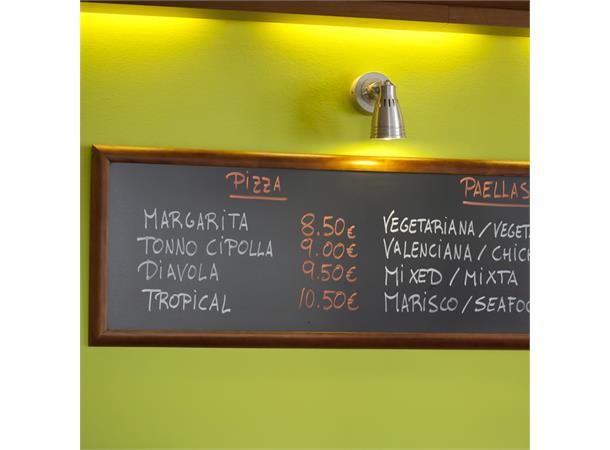 PIZZA
MARGARITA 8.50€
TONNO CIPOLLA 9.00€
DIAVOLA 9.50€
TROPICAL 10.50€
PAELLAS
VEGETARIANA / VEGETA
VALENCIANA / CHICK
MIXED / MIXTA
MARISCO / SEAFOO